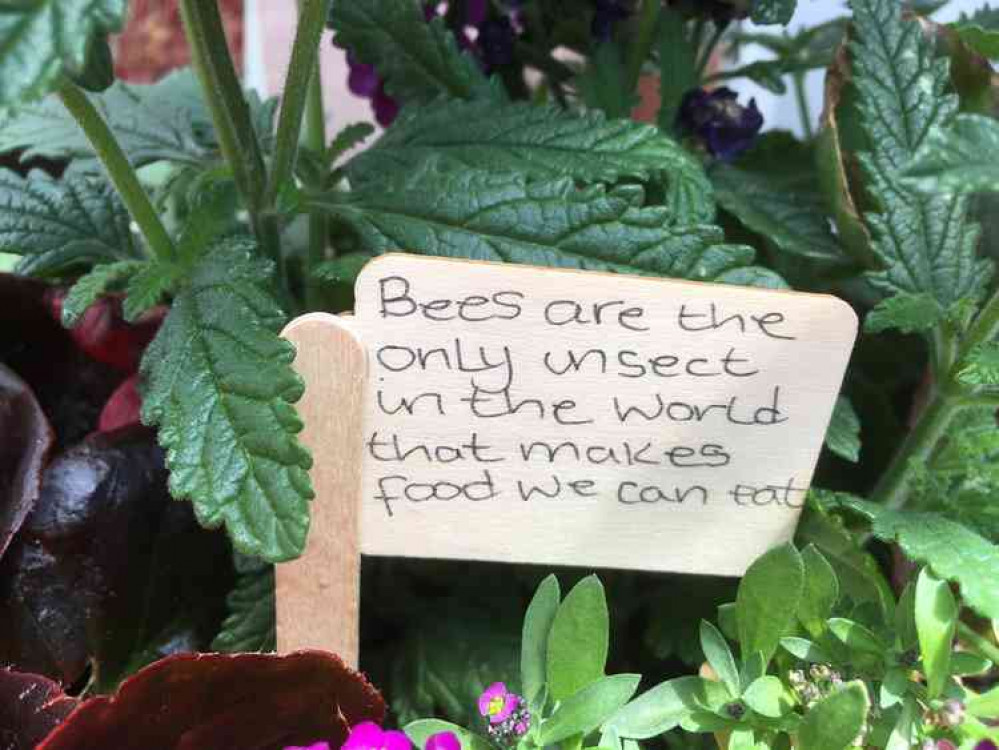 Bees are the
only insect
in the world
that makes
food we can eat